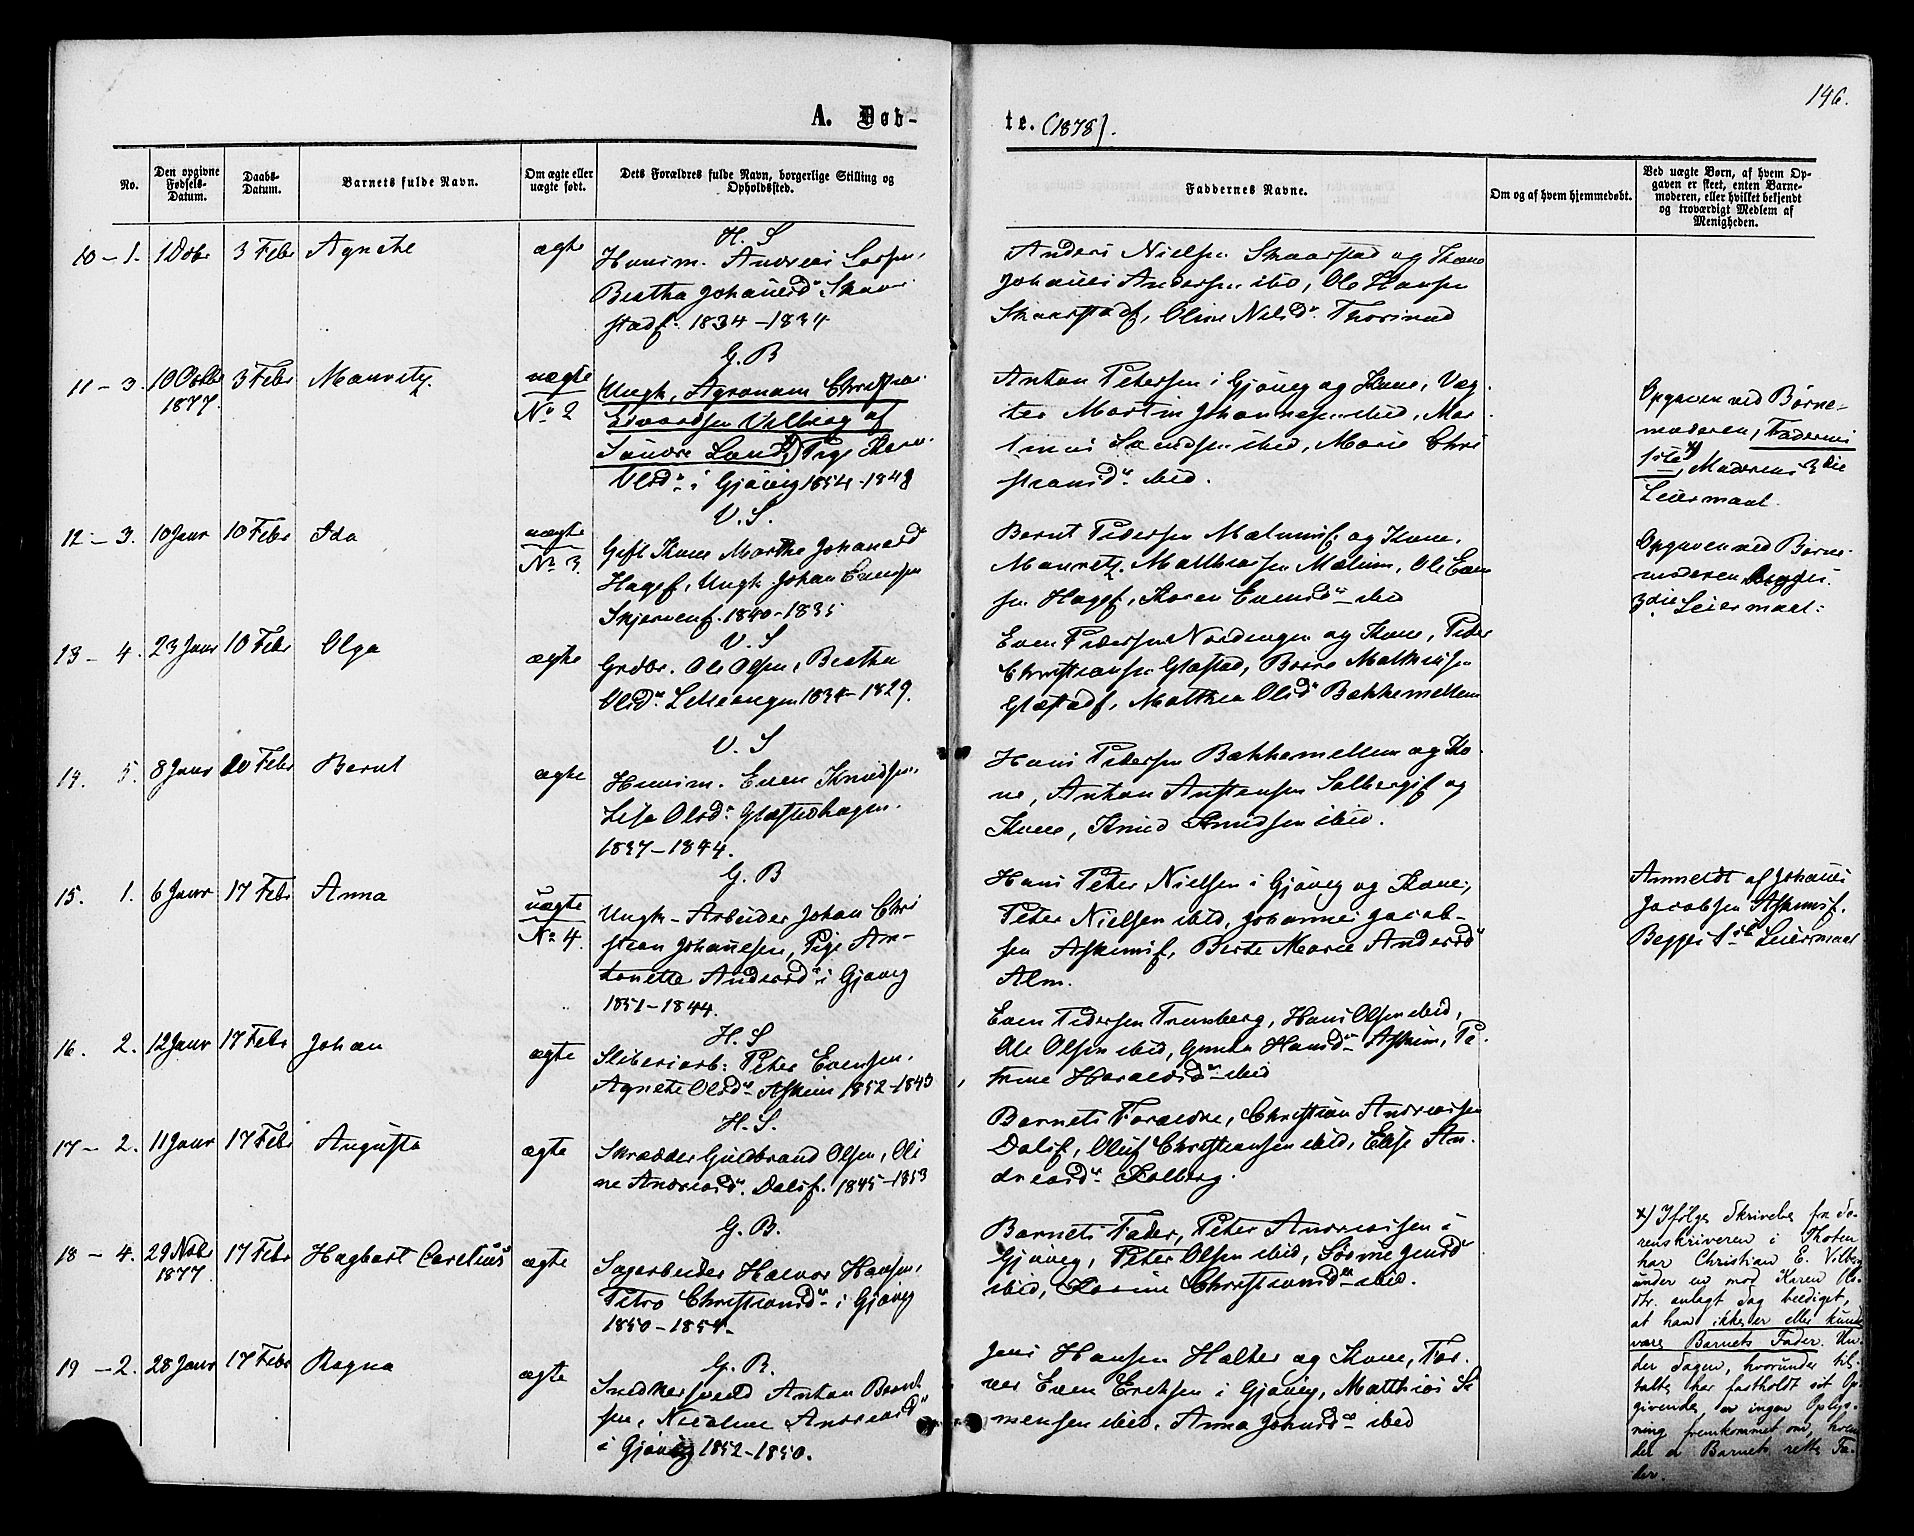 146.
A. Døb-
te. (1878).
No.
Den opgivne Fødsels-Datum.
Daabs-Datum.
Barnets fulde Navn.
Om ægte eller uægte født.
Dets Forældres fulde Navn, borgerlige Stilling og Opholdssted.
Faddernes Navne.
Om og af hvem hjemmedøbt.
Ved uægte Børn, af hvem Op-
gaven er skeet, enten Barne-
moderen, eller hvilket bekjendt
og troværdigt Medlem af
Menigheden.
10 – 1. 3 Febr Agnethe ægte
H. S
Huusm. Andreas
Beathe Johansd.
1834 – 1834
Anders Nielsen Skaarstad og Kone
Johannes Andersen ibd, Ole Hansen
Oline Nilsd.
11 – 3. 10 Octbr 1877. 3 Febr Mauritz. uægte No 2
G. B
Ungk, Agronom Christian
Edvardsen Vilberg af
Søndre Land x) Pige Karen
Olsd. i Gjøvig 1854 – 1848
Anton Petersen i Gjøvig og Kone, Væg-
ter Martin Johannesen ibid, Mar-
ibid, Marie Chri
stiansd. ibid.
Opgaven ved Børne-
moderen, Faderens
1ste x), Moderens 3die
Leiermaal.
12 – 3. 10 Janr 10 Febr Ida uægte No 3.
V. S.
Gift Kone Marthe Johansd
Ungk. Johan Evensen
1840 – 1835
Bernt Pedersen og Kone,
Mauritz Matthiassen Mælum, Ole Even
sen Karen Evensd. ibid
Opgaven ved Børne-
moderen Begges
3die Leiermaal.
13 – 4. 23 Janr 10 Febr Olga ægte
V. S
Grdbr. Ole Olsen, Beathe
Olsd. 1834 – 1829.
Even Pedersen Nordengen og Kone, Peder
Christiansen Glæstad, Mathiesen
Matthea Olsd. Bækkemellem
14. 5. 8 Janr 10 Febr Bernt ægte
V. S
Huusm. Even Knudsen,
Lisa Olsd. Glæstadhagen.
1837 – 1844.
Hans Pedersen Bækkemellem og Ko-
ne, Anton Austensen og
Kone, Knud Knudsen ibid.
15. 1. 6 Janr 17 Febr Anna uægte No 4.
G. B
Ungk – Arbeider Johan Chri
stian Johannesen, Pige An-
tonette Andersd. i Gjøvig
1851 – 1844.
Hans Peter Nielsen i Gjøvig og Kone,
Peter Nielsen ibid, Johannes Jacob-
sen Berte Marie Andersd
Alm.
Anmeldt af Johannes
Jacobsen
Begges 1ste Leiermaal
16. 2. 12 Janr 17 Febr Johan ægte
H. S
Sliberiarb: Peter Evensen,
Agnete Olsd. Askim 1852 – 1843
Even Pedersen Hans Olsen ibid,
Ole Olsen ibid, Hansd. Askim, Pe-
trine Haraldsd. ibid
17 – 2. 11 Janr 17 Febr Augusta ægte
H. S.
Skrædder Guldbrand Olsen, Oli
ne Andreasd. 1845 – 1853
Barnets Forældre, Christian Andreassen
Oluf Christiansen ibid, Elise An-
dreasd.
18 – 4. 29 Novbr 1877. 17 Febr Hagbart Carelius ægte
G. B.
Sagarbeider Halvor Hansen,
Petra Christiansd. i Gjøvig
1850 – 1854.
Barnets Fader, Peter Andreassen i
Gjøvig, Peter Olsen ibid,
ibid, Christiansd. ibid.
x) Ifølge Skrivelse fra So-
renskriveren i Thoten
har Christian E. Vilberg
under en mod Karen Ols-
dtr. anlagt Sag beediget,
at han ikke er eller kunde
være Barnets Fader. Un-
der Sagen, hvorunder til-
talte har fastholdt sit Op-
givende, er ingen Oplys-
ning fremkommet om, hvem
der er Barnets rette Fa-
der.
19 – 2. 28 Janr 17 Febr Ragna ægte
G. B.
Snedkersvend Anton Bernt
sen, Nicoline Andreasd
i Gjøvig 1852 – 1850.
Jens Hansen Halter og Kone,
Even Eriksen i Gjøvig, Matthias Si
mensen ibid, Anna Johnsd. ibid